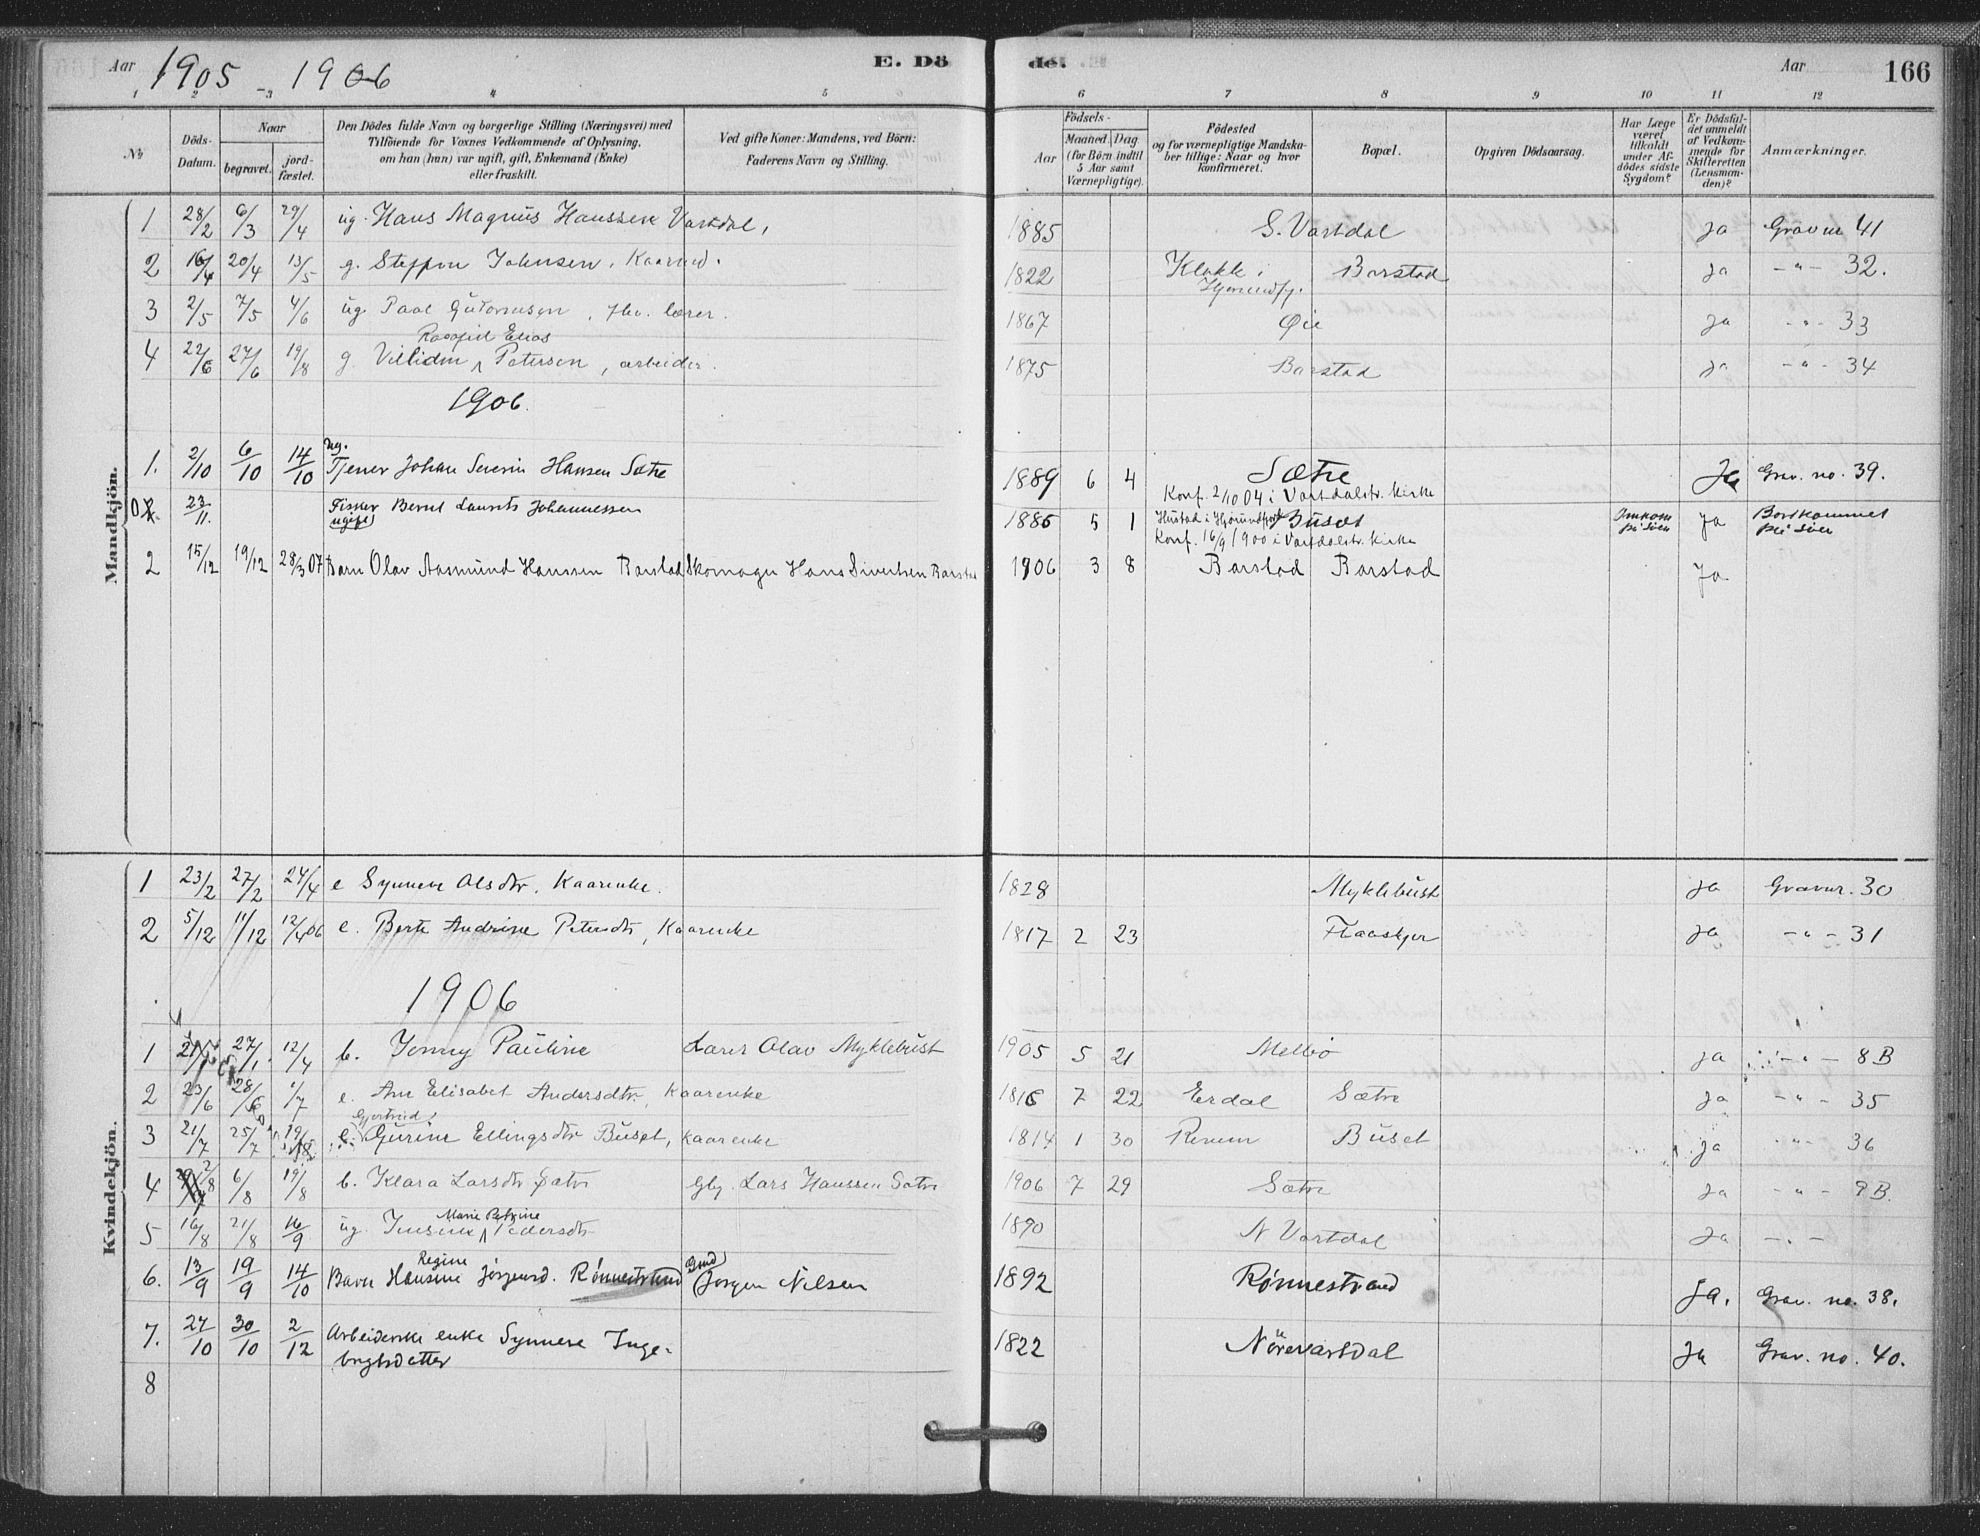 Aar 1905 - 1906 E. Dö de. Aar 166
1 2 3 4 5 6 7 8 9 10 11 12
No Döds-Datum. Naar begravet. jord-fæstet. Den Dödes fulde Navn og borgerlige Stilling (Næringsvei) med Tilföiende for Voxnes Vedkommende af Oplysning, om han (hun) var ugift, gift, Enkemand (Enke) eller fraskilt. Ved gifte Koner: Mandens, ved Börn: Faderens Navn og Stilling. Födsels- Aar Maaned Dag (for Börn indtil 5 Aar samt Værnepligtige). Födested og for værnepligtige Mandskaber tillige: Naar og hvor konfirmeret. Bopæl. Opgiven Dödsaarsag. Har Læge været tilkaldt under Afdödes sidste Sygdom? Er Dödsfaldet anmeldt af Vedkommende for Skifteretten (Lensmanden)? Anmærkninger.
Mandkjön.
1 28/2 6/3 29/4 ug. Hans Magnus Hanssen Vartdal, 1885 S. Vartdal Ja Gravnr 41
2 16/4 20/4 13/5 g. Steffen Johnsen, Kaarmd. 1822 Klokk i Hjørundfj. Barstad Ja -"- 32.
3 2/5 7/5 4/6 ug. Paal Guttormsen, fhv. lærer. 1867 Øie Ja -"- 33
Elias
4 22/6 27/6 19/8 g. Petersen, arbeider. 1875 Barstad Ja -"- 34
1906.
1. 2/10 6/10 14/10 ug. Tjener Johan Severin Hansen Sætre 1889 6 4 Sætre Ja Grav. no. 39.
Konf. 2/10 04 i Vartdalstr. kirke
23/11. Fisker Bernt Laurits Johannessen 1885 5 1 Hustad i Hjørundfjord Buset Omkom på søen Ja Bortkommet på søen
ugift Konf. 16/9 1900 i Vartdalstr. kirke
2 15/12 19/12 28/3 07 Barn Olav Aasmund Hanssen Barstad Skomager Hans Sivertsen Barstad 1906 3 8 Barstad Barstad Ja
Kvindekjön.
1 23/2 27/2 24/4 e Synneve Olsdtr. Kaarenke. 1828 Myklebust Ja Gravnr. 30
2 5/12 11/12 12/4 06 e. Berte Andrine Petersdtr, Kaarenke 1817 2 23 Flaaskjer Ja -"- 31
1906
1 27/1. 12/4 b. Jenny Pauline Lærer Olav Myklebust 1905 5 21 Melbø Ja -"- 8 B
2 23/6 28/6 1/7 e. Ane Elisabet Andersdtr. Kaarenke 1816 7 22 Erdal Sætre Ja -"- 35
Gjertrud
3 21/7 25/7 19/8 e. Gurine Ellingsdtr Buset, Kaarenke 1814 1 30 Buset Ja -"- 36
4 2/8 6/8 19/8 b. Klara Larsdtr Sætre Gbr. Lars Hanssen Sætre 1906 7 29 Sætre Ja -"- 9 B.
Marie Petrine
5 16/8 21/8 16/9 ug Jensine Pedersdtr 1890 N Vartdal Ja -"-
Regine
6. 13/9 19/9 14/10 Barn Hansine Jørgensd. Rønnestrand Gmd Jørgen Nilsen 1892 Rønnestrand Ja. Grav. no. 38.
7. 24/10 30/10 2/12 Arbeiderske enke Synneve Inge- 1822 Nörevartdal Ja Grav. no. 40.
brigtsdatter
8